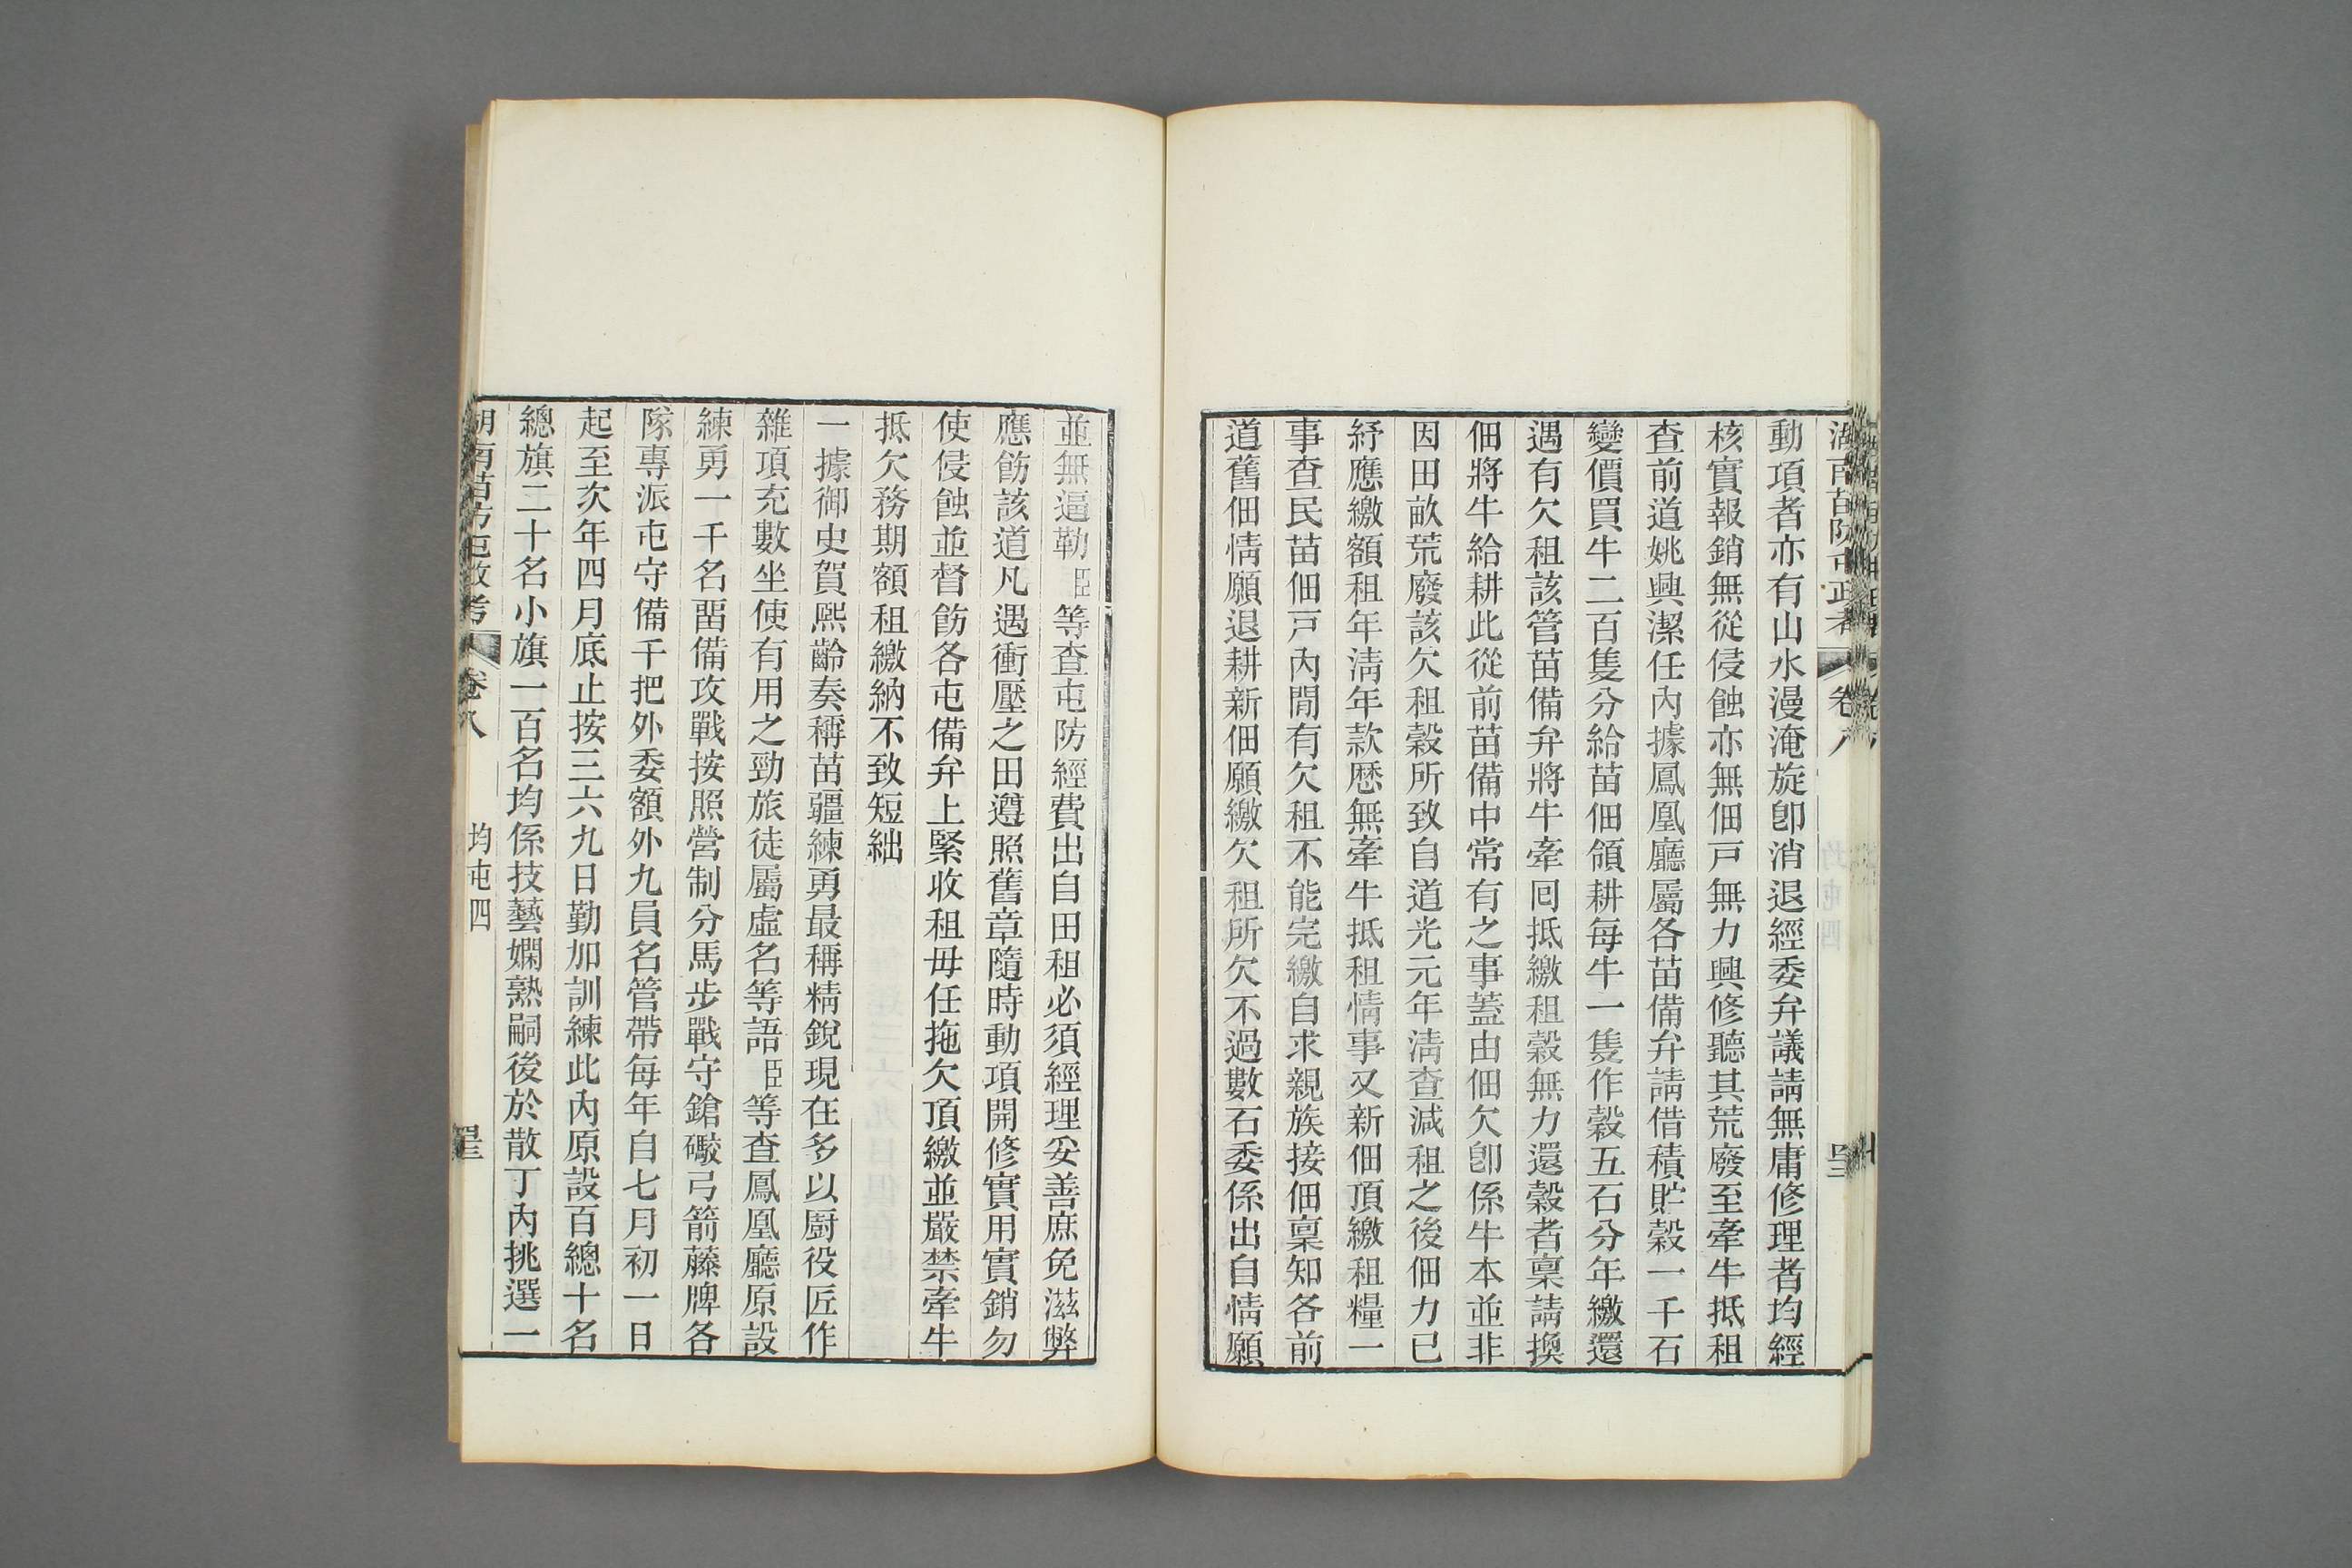 湖南苗防屯政考 卷八
動項者亦有山水漫淹旋卽消退經委弁議請無庸修理者均經
核實報銷無從侵蝕亦無佃戸無力興修聽其荒廢至牽牛抵租
查前道姚興潔任內據鳳凰廳屬各苗備弁請借積貯穀一千石
變價買牛二百隻分給苗佃領耕每牛一隻作穀五石分年繳還
遇有欠租該管苗備弁將牛牽囘抵繳租穀無力還穀者稟請換
佃將牛給耕此從前苗備中常有之事蓋由佃欠卽係牛本並非
因田畝荒廢該欠租穀所致自道光元年淸查減租之後佃力已
紓應繳額租年淸年款厯無牽牛抵租情事又新佃頂繳租糧一
事查民苗佃戸內閒有欠租不能完繳自求親族接佃稟知各前
道舊佃情願退耕新佃願繳欠租所欠不過數石委係出自情願
並無逼勒臣等查屯防經費出自田租必須經理妥善庶免滋弊
應飭該道凡遇衝壓之田遵照舊章隨時動項開修實用實銷勿
使侵蝕並督飭各屯備弁上緊收租毋任拖欠頂繳並嚴禁牽牛
抵欠務期額租繳納不致短絀
一據御史賀熙齡奏稱苗疆練勇最稱精銳現在多以厨役匠作
雜項充數坐使有用之勁旅徒屬虛名等語臣等查鳳凰廳原設
練勇一千名畱備攻戰按照營制分馬步戰守鎗礮弓箭藤牌各
隊專派屯守備千把外委額外九員名管帶每年自七月初一日
起至次年四月底止按三六九日勤加訓練此內原設百總十名
總旗二十名小旗一百名均係技藝嫻熟嗣後於散丁內挑選一
湖南苗防屯政考 卷八 均屯四